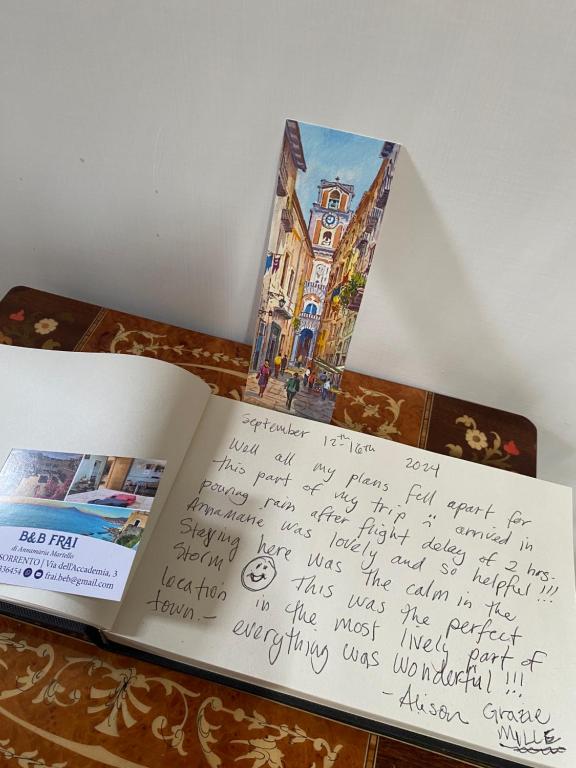 B&B FRAI
di Annamaria Martello
SORRENTO | Via dell'Accademia, 3
336454
frai.beb@gmail.com
September 12th-16th 2024
Well all my plans fell apart for
this part of my trip & arrived in
pouring rain after flight delay of 2 hrs.
Annamarie was lovely and so helpful!!!
Staying here was the calm in the
storm This was the perfect
location in the most lively part of
town. - everything was wonderful!!!
- Alison Grazie
MILLE